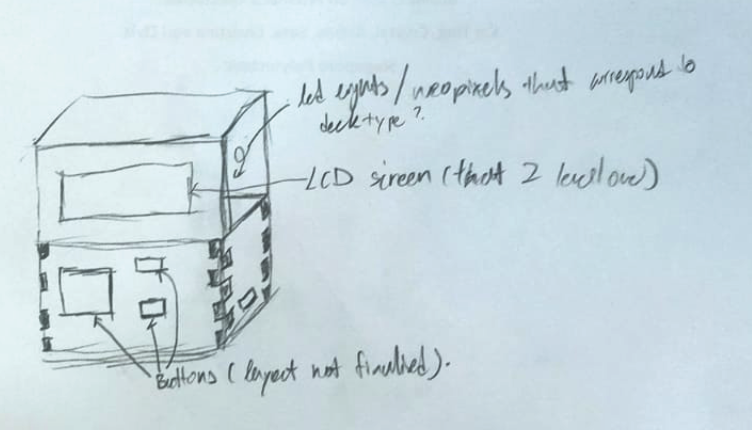 led lights / neopixels that correspond to
deck type?
LCD screen (that 2 level one)
Buttons (layout not finalised).